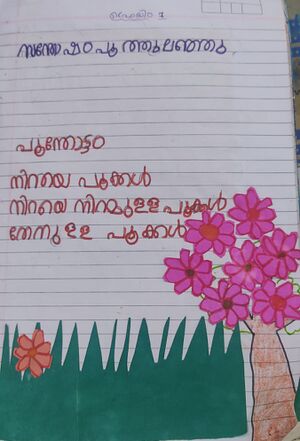 സന്തോഷം പൂത്തുലഞ്ഞു
പൂന്തോട്ടം
നിറയെ പൂക്കൾ
നിറയെ നിറമുള്ള പൂക്കൾ
തേനുള്ള പൂക്കൾ